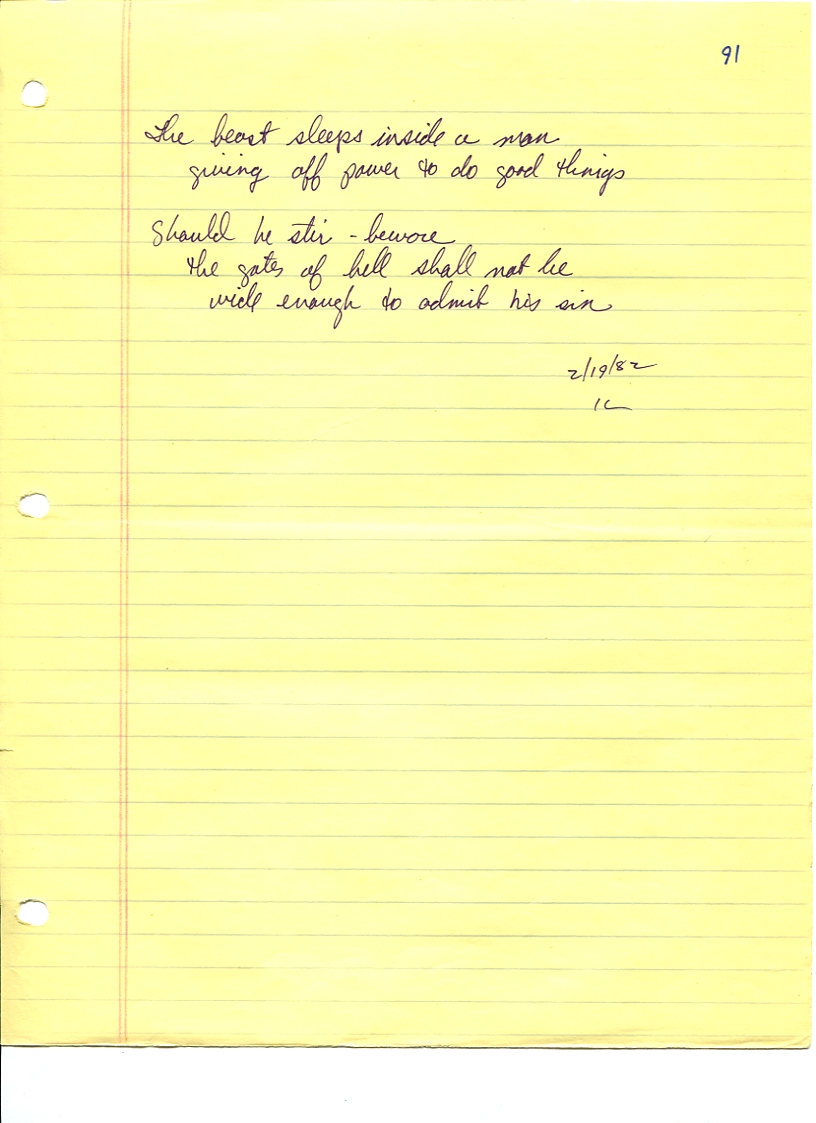 91
The beast sleeps inside a man
giving off power to do good things
Should he stir - beware
the gates of hell shall not be
wide enough to admit his sin
2/19/82